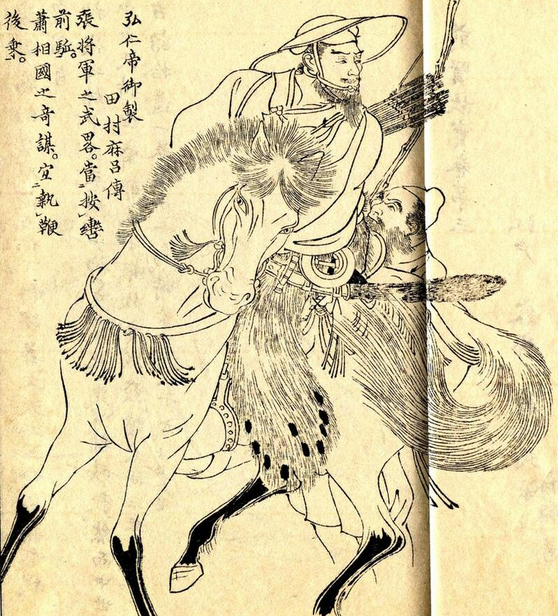 弘仁帝御製
田村麻呂傳
張將軍之武畧。當按轡
前駈。
蕭相國之奇謀。宜執鞭
後乗。